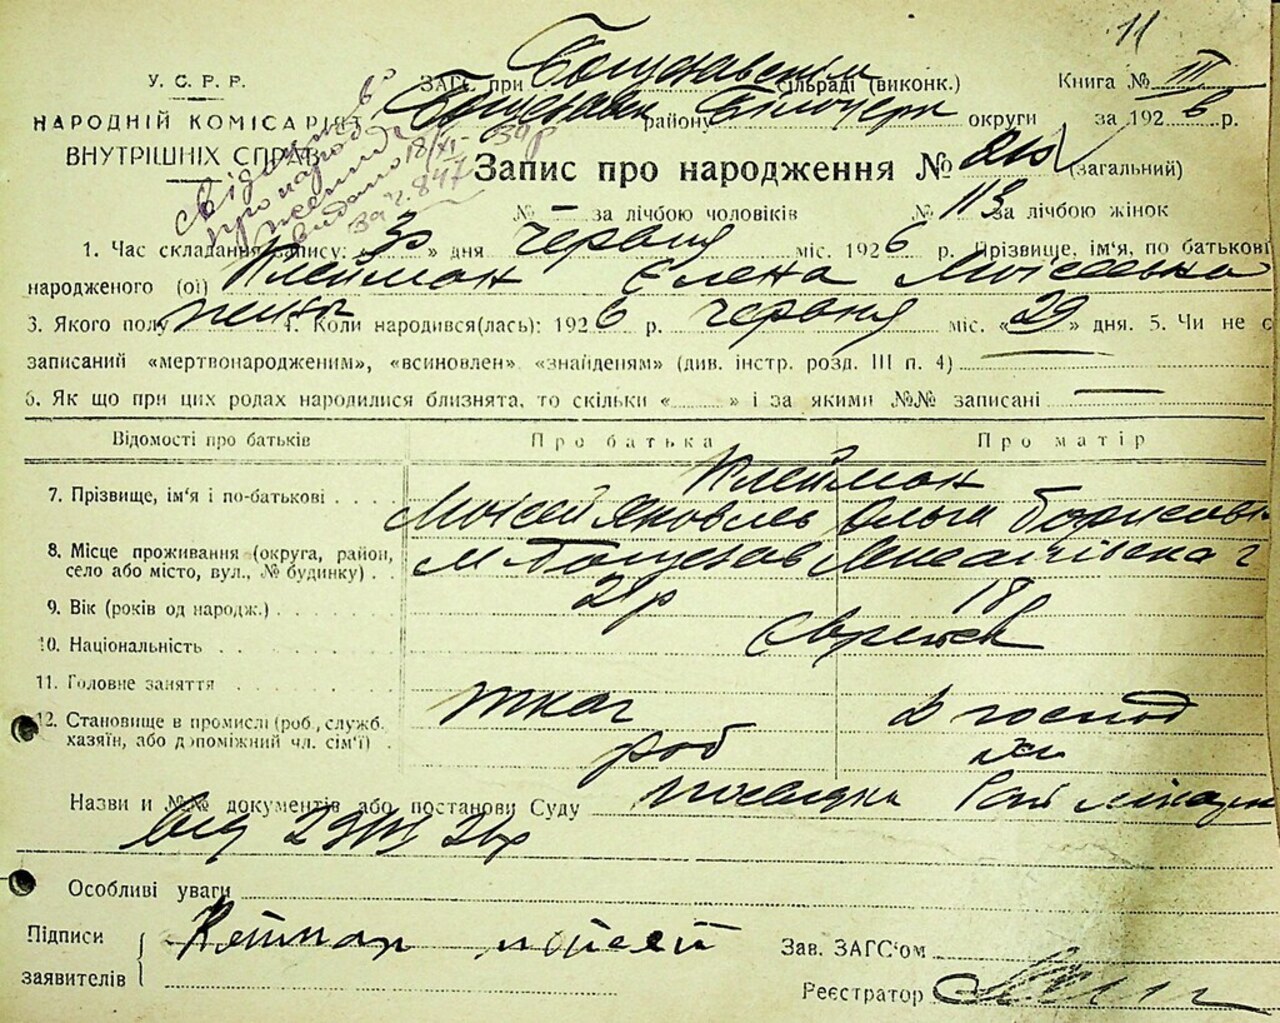 11
У. С. Р. Р.
НАРОДНІЙ КОМІСАРІЯТ
ВНУТРІШНІХ СПРАВ
ЗАГС при Богуславськім сільраді (виконк.)
Богуславськ району Білоцерк округи
Книга № III
за 1926 р.
видано 18/XI-39р
за ч. 847
Запис про народження № 210 (загальний)
№ — за лічбою чоловіків № 113 за лічбою жінок
1. Час складання запису: «30» дня червня міс. 1926 р. Прізвище, ім'я, по батькові
народженого (ої) Клейман Елена Моісеевна
3. Якого полу жіноч 4. Коли народився(лась): 1926 р. червня міс. «29» дня. 5. Чи не є
записаний «мертвонародженим», «всиновлен» «знайденям» (див. інстр. розд. III п. 4) —
6. Як що при цих родах народилися близнята, то скільки « » і за якими №№ записані —
Відомості про батьків Про батька Про матір
Клейман
7. Прізвище, ім'я і по-батькові Мойсей Яковлев Ольга Борисовн
8. Місце проживання (округа, район,
село або місто, вул., № будинку) м Богуслав
9. Вік (років од народж.) 21р 18р
10. Національність Евреяск
11. Головне заняття ткач д господ
12. Становище в промислі (роб., служб.
хазяїн, або допоміжний чл. сім'ї) роб
Назви и №№ документів або постанови Суду посвідка
від 29/VI 26р
Особливі уваги
Підписи
заявителів
Клейман мойсей
Зав. ЗАГС'ом
Реєстратор